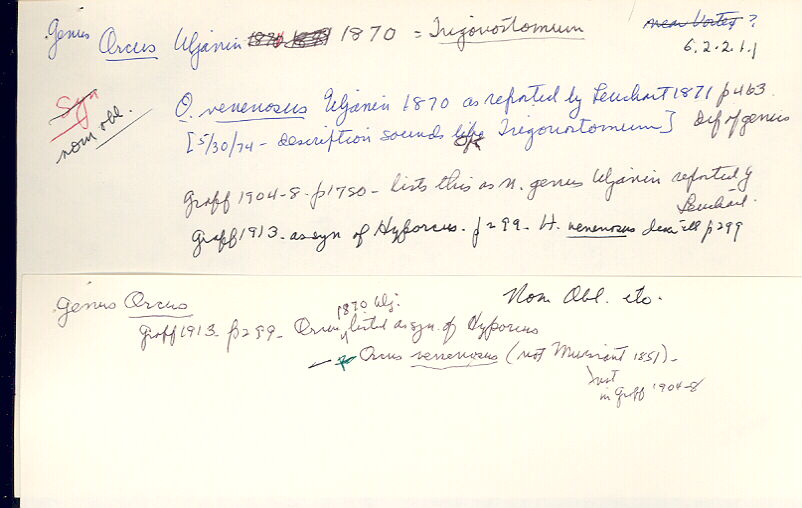 Genus Orcus Uljanin 1870 = Trigonostomum
near Vortex ?
6.2.2.1.1
Syn
nom obl.
O. venenosus Uljanin 1870 as reported by Leuckart 1871 p 463.
[5/30/74 - description sounds like Trigonostomum] Def of genus
OK
Graff 1904-8. p1780 - lists this as n. genus Uljanin reported by
Leuckart.
Graff 1913 - as syn of Hyporcus. p 299 - H. venenosus p 299
Genus Orcus
Nom Obl. etc.
1870 Ulj.
Graff 1913 - p 299 - Orcus, listed as syn. of Hyporcus
Orcus venenosus (not Mulsant 1851) -
Just
in Graff 1904-8